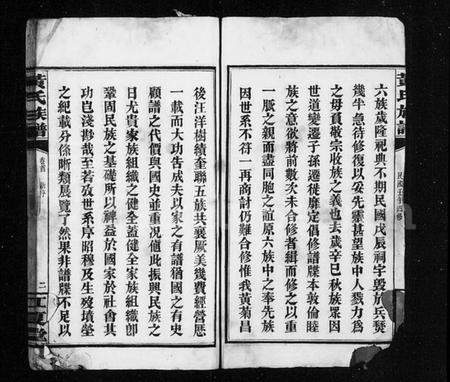 黃氏族譜
六族歲隆祀典不期民國戊辰祠宇毀於兵燹
幾半急待修復以妥先靈甚望族中人戮力為
之毋負敬宗收族之義也去歲辛巳秋族眾因
世道變遷子孫遷徙靡定倡修譜牒本敦倫睦
族之意欲將前數次未合修者緝而修之以重
一脈之親而盡同胞之誼原六族中之奉先族
因世系不符一再商討仍難合修惟我黃菊昌
後汪洋樹績奎聯五族共襄厥美幾費經營歷
一載而大功告成夫以家之有譜猶國之有史
顧譜之代價與國史並重况値此振興民族之
日尤貴家族組織之健全蓋健全家族組織卽
鞏固民族之基礎所以裨益於國家於社會其
功豈淺尠哉至若攷世系序昭穆及生歿墳塋
之紀載分條晰類展覽了然果非譜牒不足以
黃氏族譜
卷首
二